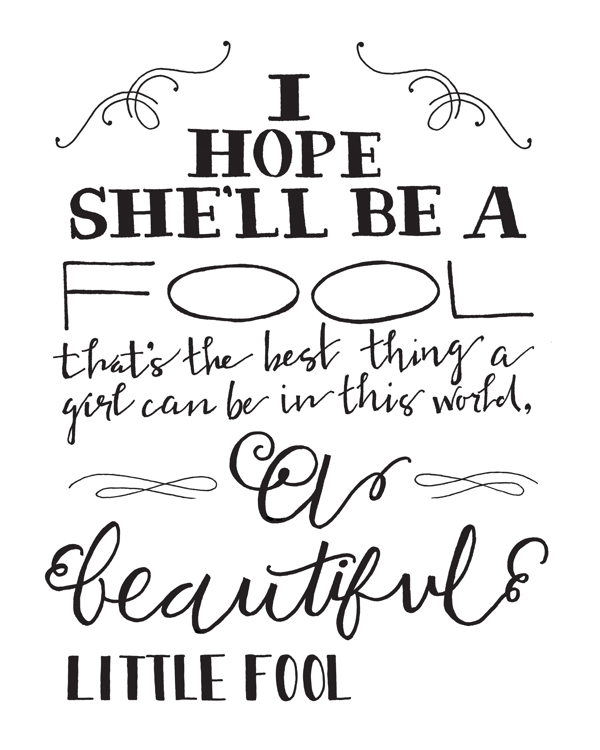 I
HOPE
SHE'LL BE A
FOOL
that's the best thing a
girl can be in this world,
a
beautiful
LITTLE FOOL